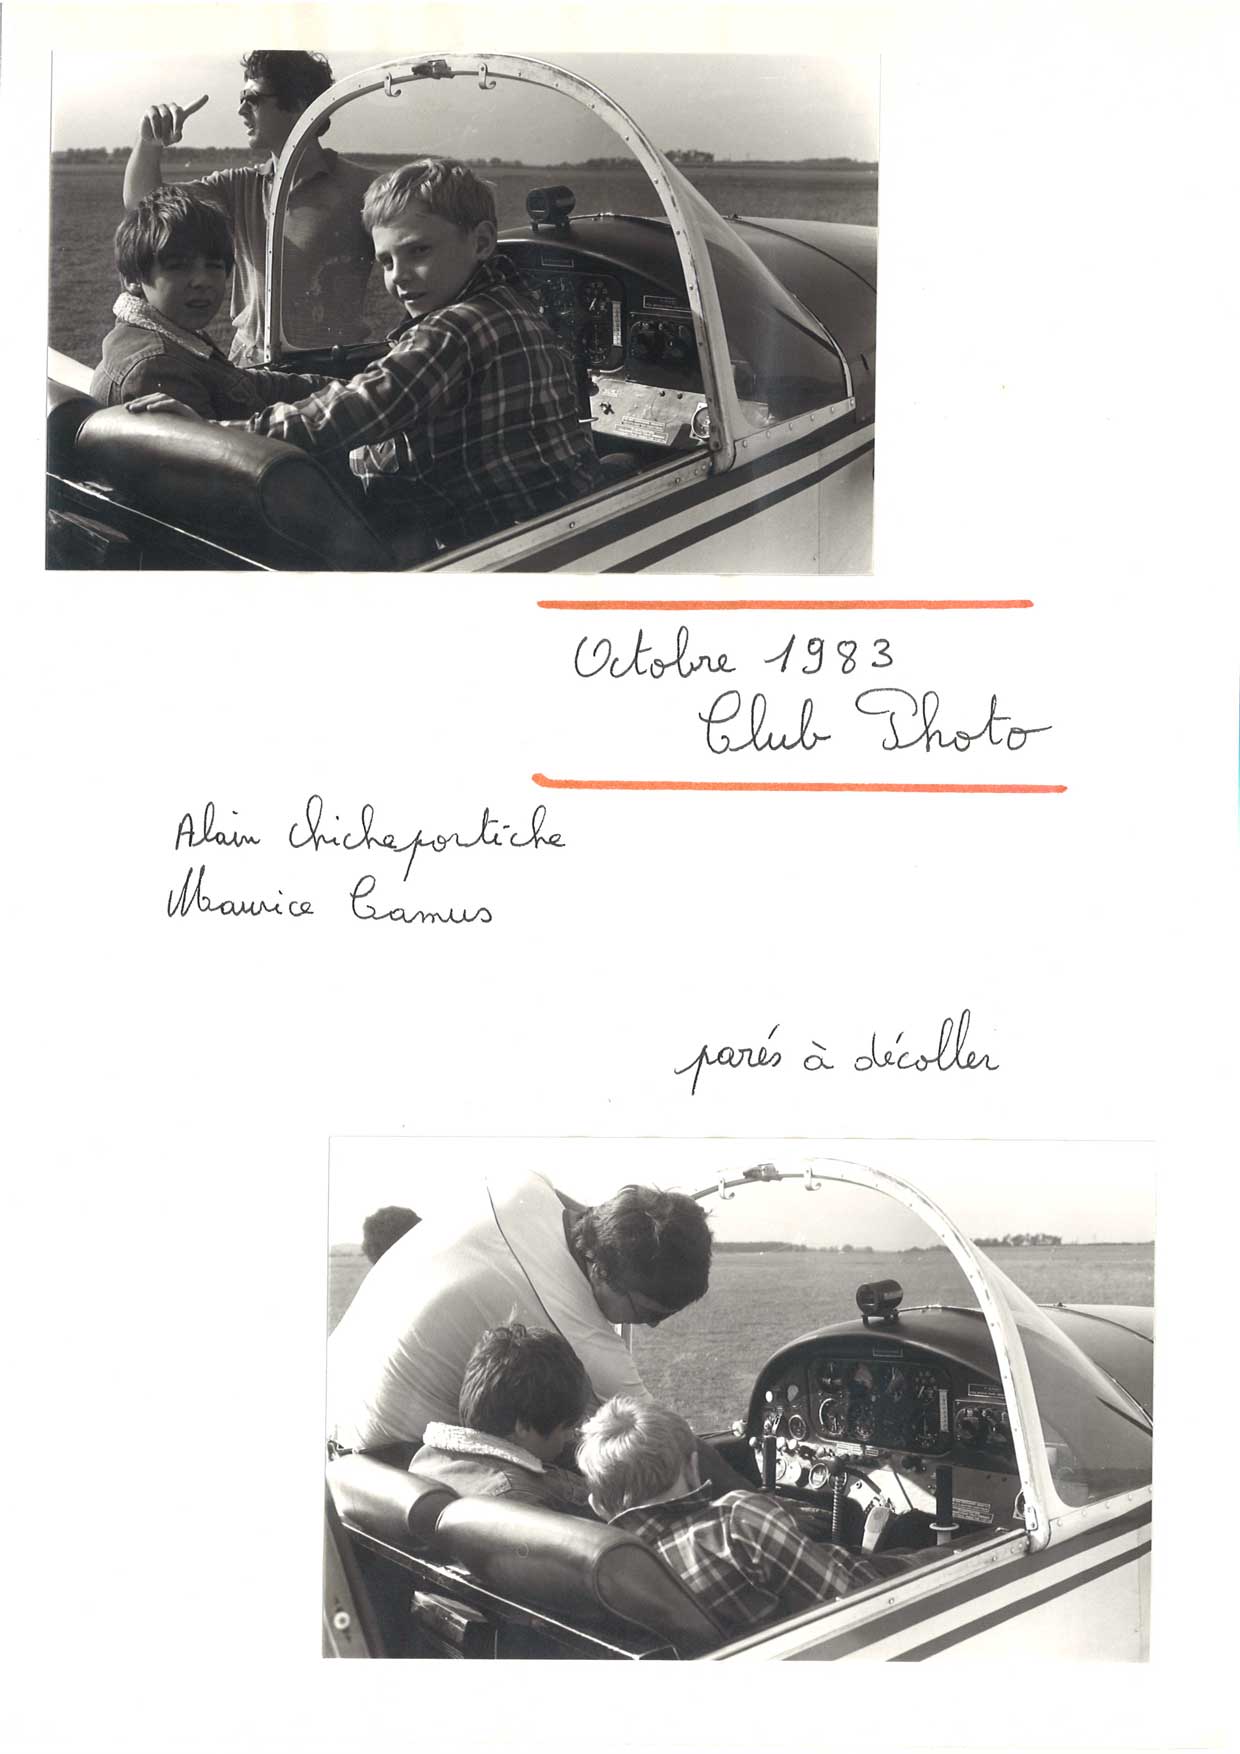 Octobre 1983
Club Photo
Alain Chicheportiche
Maurice Camus
parés à décoller